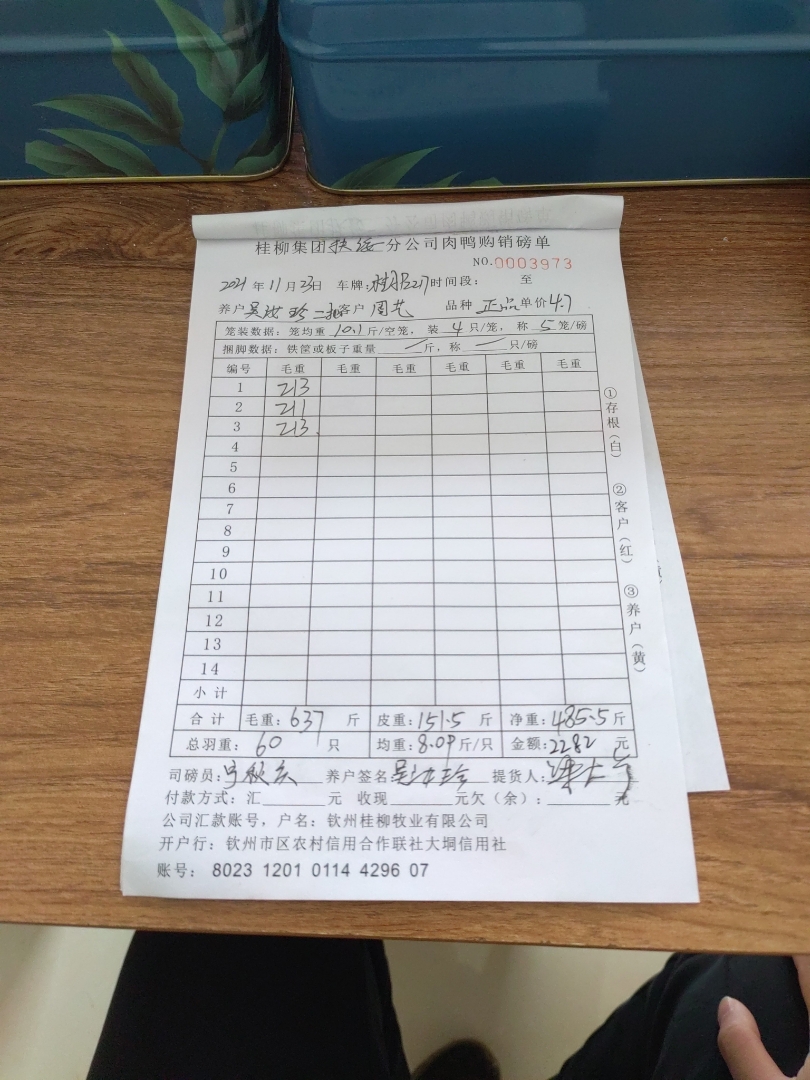 桂柳集团扶绥分公司肉鸭购销磅单
NO.0003973
2021年11月23日 车牌: 217 时间段: 至
养户 吴 珍 二批 客户 周艺 品种 正品 单价4.7
笼装数据: 笼均重 10.1 斤/空笼, 装 4 只/笼, 称 5 笼/磅
捆脚数据: 铁筐或板子重量 / 斤, 称 / 只/磅
编号 毛重 毛重 毛重 毛重 毛重 毛重
1 213
2 211
3 213
4
5
6
7
8
9
10
11
12
13
14
小计
合计 毛重: 637 斤 皮重: 151.5 斤 净重: 485.5 斤
总羽重: 60 只 均重: 8.09 斤/只 金额: 2282 元
司磅员: 养户签名 吴 珍 提货人:
付款方式: 汇 元 收现 元欠(余): 元
公司汇款账号, 户名: 钦州桂柳牧业有限公司
开户行: 钦州市区农村信用合作联社大垌信用社
账号: 8023 1201 0114 4296 07
①存根(白)
②客户(红)
③养户(黄)